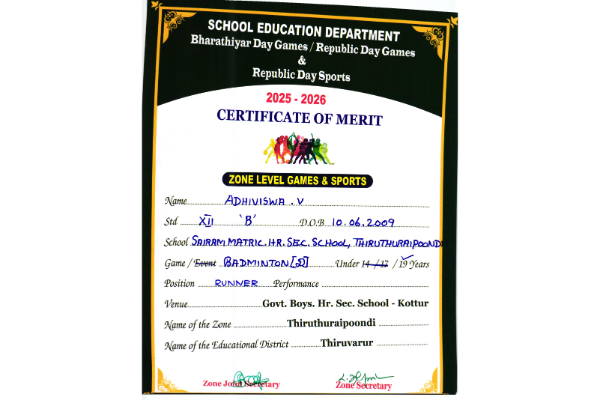 SCHOOL EDUCATION DEPARTMENT
Bharathiyar Day Games / Republic Day Games
&
Republic Day Sports
2025 - 2026
CERTIFICATE OF MERIT
ZONE LEVEL GAMES & SPORTS
Name ADHIVISWA .V
Std XII 'B' D.O.B 10.06.2009
School SAIRAM MATRIC. HR. SEC. SCHOOL, THIRUTHURAIPOONDI
Game / Event BADMINTON [D] Under 14 / 17 / 19 Years
Position RUNNER Performance
Venue Govt. Boys. Hr. Sec. School - Kottur
Name of the Zone Thiruthuraipoondi
Name of the Educational District Thiruvarur
Zone Joint Secretary Zone Secretary